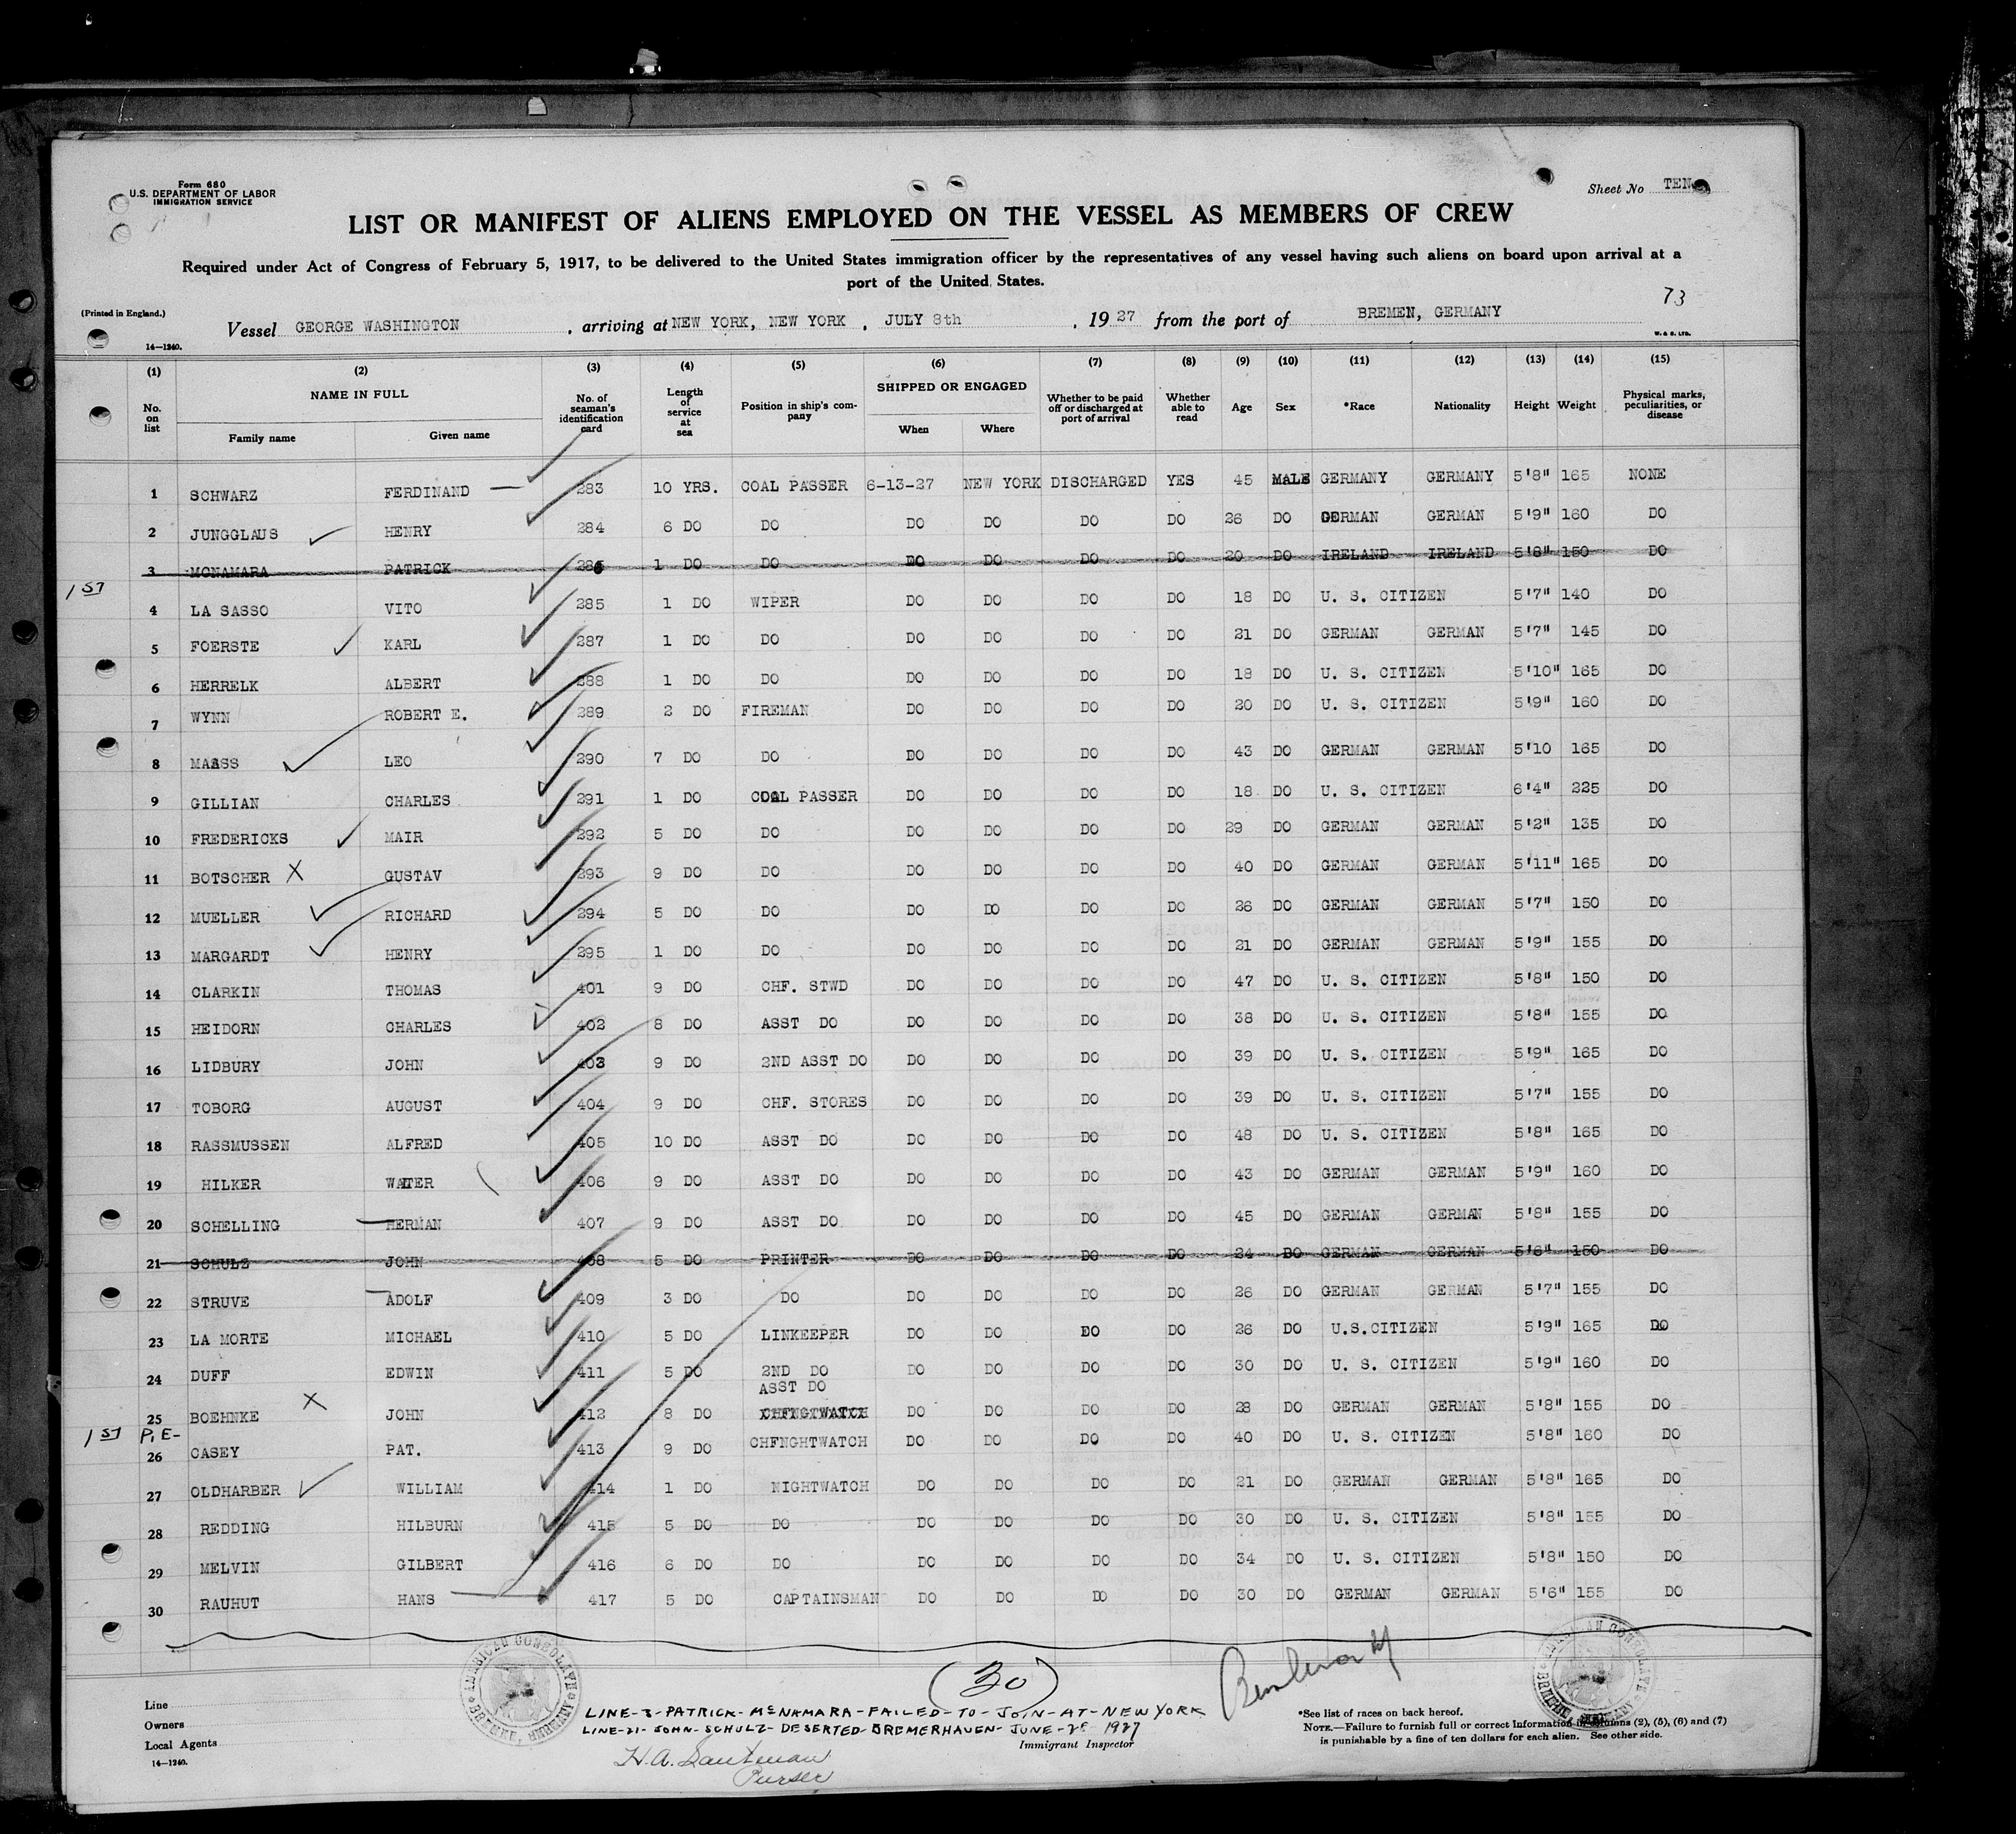 Form 680
U.S. DEPARTMENT OF LABOR
IMMIGRATION SERVICE
Sheet No TEN
LIST OR MANIFEST OF ALIENS EMPLOYED ON THE VESSEL AS MEMBERS OF CREW
Required under Act of Congress of February 5, 1917, to be delivered to the United States immigration officer by the representatives of any vessel having such aliens on board upon arrival at a
port of the United States.
73
(Printed in England.)
Vessel GEORGE WASHINGTON , arriving at NEW YORK, NEW YORK , JULY 8th , 1927 from the port of BREMEN, GERMANY
14—1240.
W. & S. LTD.
(1) (2) (3) (4) (5) (6) (7) (8) (9) (10) (11) (12) (13) (14) (15)
No. on list NAME IN FULL Family name Given name No. of seaman's identification card Length of service at sea Position in ship's company SHIPPED OR ENGAGED When Where Whether to be paid off or discharged at port of arrival Whether able to read Age Sex *Race Nationality Height Weight Physical marks, peculiarities, or disease
1 SCHWARZ FERDINAND 283 10 YRS. COAL PASSER 6-13-27 NEW YORK DISCHARGED YES 45 MALE GERMANY GERMANY 5'8" 165 NONE
2 JUNGGLAUS HENRY 284 6 DO DO DO DO DO DO 26 DO GERMAN GERMAN 5'9" 160 DO
3 MCNAMARA PATRICK 286 1 DO DO DO DO DO DO 20 DO IRELAND IRELAND 5'8" 150 DO
1ST
4 LA SASSO VITO 285 1 DO WIPER DO DO DO DO 18 DO U. S. CITIZEN 5'7" 140 DO
5 FOERSTE KARL 287 1 DO DO DO DO DO DO 21 DO GERMAN GERMAN 5'7" 145 DO
6 HERRELK ALBERT 288 1 DO DO DO DO DO DO 18 DO U. S. CITIZEN 5'10" 165 DO
7 WYNN ROBERT E. 289 2 DO FIREMAN DO DO DO DO 20 DO U. S. CITIZEN 5'9" 160 DO
8 MAASS LEO 290 7 DO DO DO DO DO DO 43 DO GERMAN GERMAN 5'10 165 DO
9 GILLIAN CHARLES 291 1 DO COAL PASSER DO DO DO DO 18 DO U. S. CITIZEN 6'4" 225 DO
10 FREDERICKS MAIR 292 5 DO DO DO DO DO DO 29 DO GERMAN GERMAN 5'2" 135 DO
11 BOTSCHER X GUSTAV 293 9 DO DO DO DO DO DO 40 DO GERMAN GERMAN 5'11" 165 DO
12 MUELLER RICHARD 294 5 DO DO DO DO DO DO 26 DO GERMAN GERMAN 5'7" 150 DO
13 MARGARDT HENRY 295 1 DO DO DO DO DO DO 21 DO GERMAN GERMAN 5'9" 155 DO
14 CLARKIN THOMAS 401 9 DO CHF. STWD DO DO DO DO 47 DO U. S. CITIZEN 5'8" 150 DO
15 HEIDORN CHARLES 402 8 DO ASST DO DO DO DO DO 38 DO U. S. CITIZEN 5'8" 155 DO
16 LIDBURY JOHN 403 9 DO 2ND ASST DO DO DO DO DO 39 DO U. S. CITIZEN 5'9" 165 DO
17 TOBORG AUGUST 404 9 DO CHF. STORES DO DO DO DO 39 DO U. S. CITIZEN 5'7" 155 DO
18 RASSMUSSEN ALFRED 405 10 DO ASST DO DO DO DO DO 48 DO U. S. CITIZEN 5'8" 165 DO
19 HILKER WALTER 406 9 DO ASST DO DO DO DO DO 43 DO GERMAN GERMAN 5'9" 160 DO
20 SCHELLING HERMAN 407 9 DO ASST DO DO DO DO DO 45 DO GERMAN GERMAN 5'8" 155 DO
21 SCHULZ JOHN 408 5 DO PRINTER DO DO DO DO 24 DO GERMAN GERMAN 5'6" 150 DO
22 STRUVE ADOLF 409 3 DO DO DO DO DO DO 26 DO GERMAN GERMAN 5'7" 155 DO
23 LA MORTE MICHAEL 410 5 DO LINKEEPER DO DO DO DO 26 DO U.S.CITIZEN 5'9" 165 DO
24 DUFF EDWIN 411 5 DO 2ND DO DO DO DO DO 30 DO U. S. CITIZEN 5'9" 160 DO
ASST DO
25 BOEHNKE X JOHN 412 8 DO CHFNGTWATCH DO DO DO DO 28 DO GERMAN GERMAN 5'8" 155 DO
1ST P.E-
26 CASEY PAT. 413 9 DO CHFNGHTWATCH DO DO DO DO 40 DO U. S. CITIZEN 5'8" 160 DO
27 OLDHARBER WILLIAM 414 1 DO NIGHTWATCH DO DO DO DO 21 DO GERMAN GERMAN 5'8" 165 DO
28 REDDING HILBURN 415 5 DO DO DO DO DO DO 30 DO U. S. CITIZEN 5'8" 155 DO
29 MELVIN GILBERT 416 6 DO DO DO DO DO DO 34 DO U. S. CITIZEN 5'8" 150 DO
30 RAUHUT HANS 417 5 DO CAPTAINSMAN DO DO DO DO 30 DO GERMAN GERMAN 5'6" 155 DO
(30)
AMERICAN CONSULATE BREMEN,
Line
Owners
Local Agents
14—1240.
LINE-3-PATRICK-McNAMARA-FAILED-TO-JOIN-AT-NEW YORK
LINE-21-JOHN-SCHULZ-DESERTED-BREMERHAVEN-JUNE-28 1927
Immigrant Inspector
Purser
*See list of races on back hereof.
NOTE.—Failure to furnish full or correct information in columns (2), (5), (6) and (7)
is punishable by a fine of ten dollars for each alien. See other side.